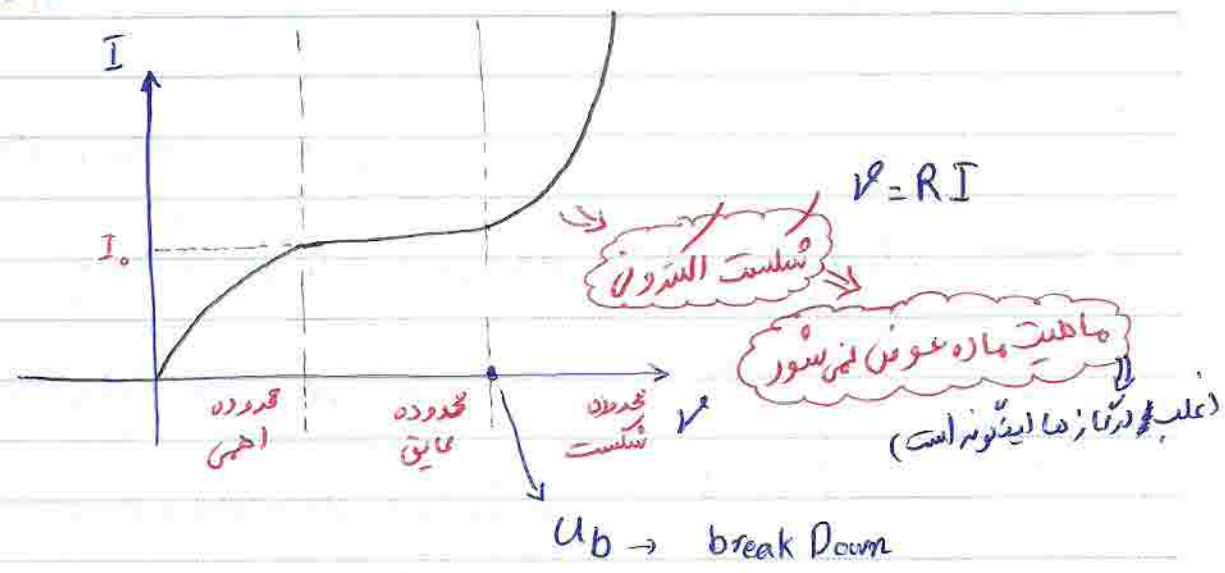 I
V = RI
I₀
شکست الکترونی
ماهیت ماده عوض نمی‌شود
(اغلب در گازها اینگونه است)
محدوده اهمی
محدوده عایق
محدوده شکست
V
U_b → break Down